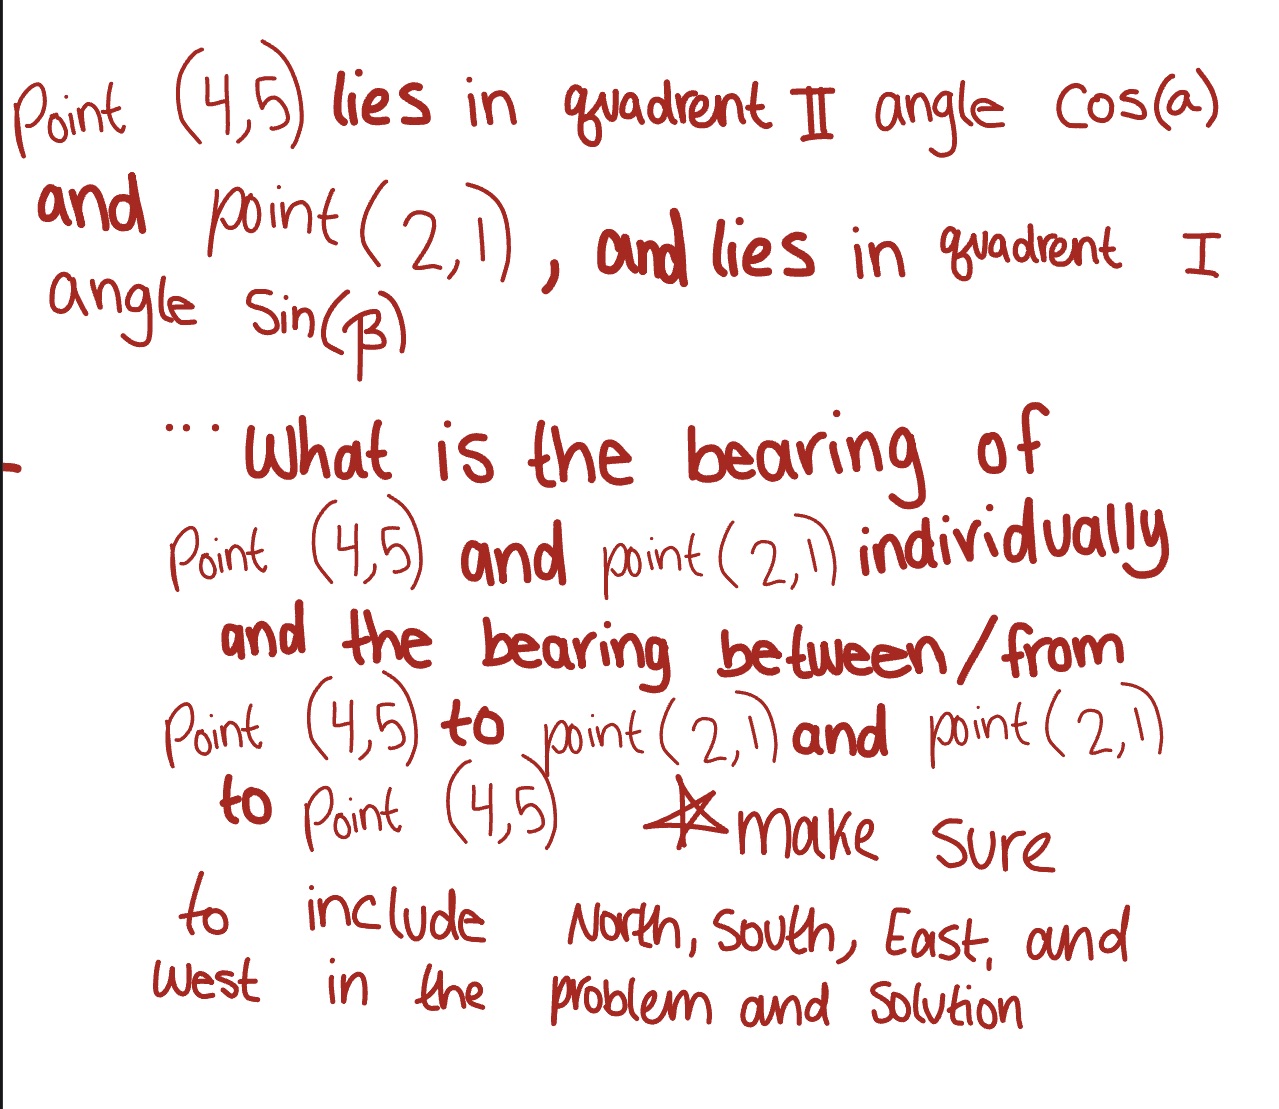 Point (4,5) lies in quadrent II angle cos(a)
and point (2,1), and lies in quadrent I
angle Sin(β)
... What is the bearing of
Point (4,5) and point (2,1) individually
and the bearing between/from
Point (4,5) to point (2,1) and point (2,1)
to Point (4,5) ☆ make sure
to include North, South, East, and
West in the problem and Solution